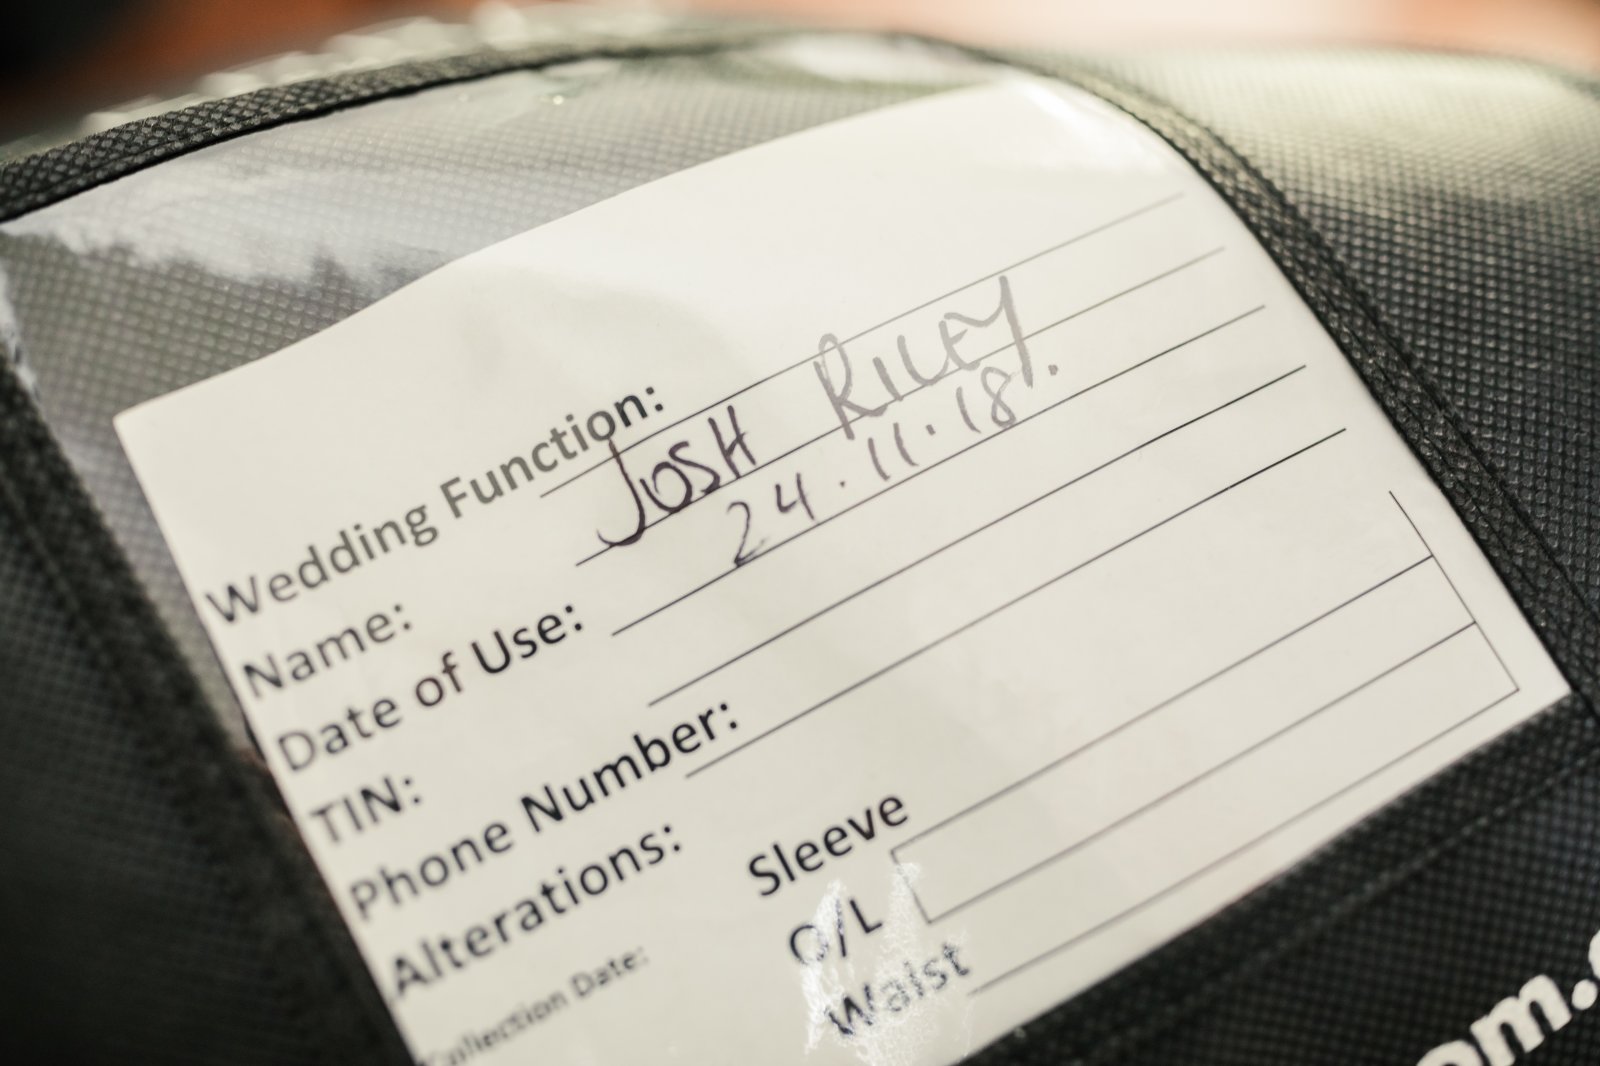 Wedding Function:
Name: JOSH RILEY
Date of Use: 24.11.18.
TIN:
Phone Number:
Alterations: Sleeve
O/L
Waist
Collection Date:
om.